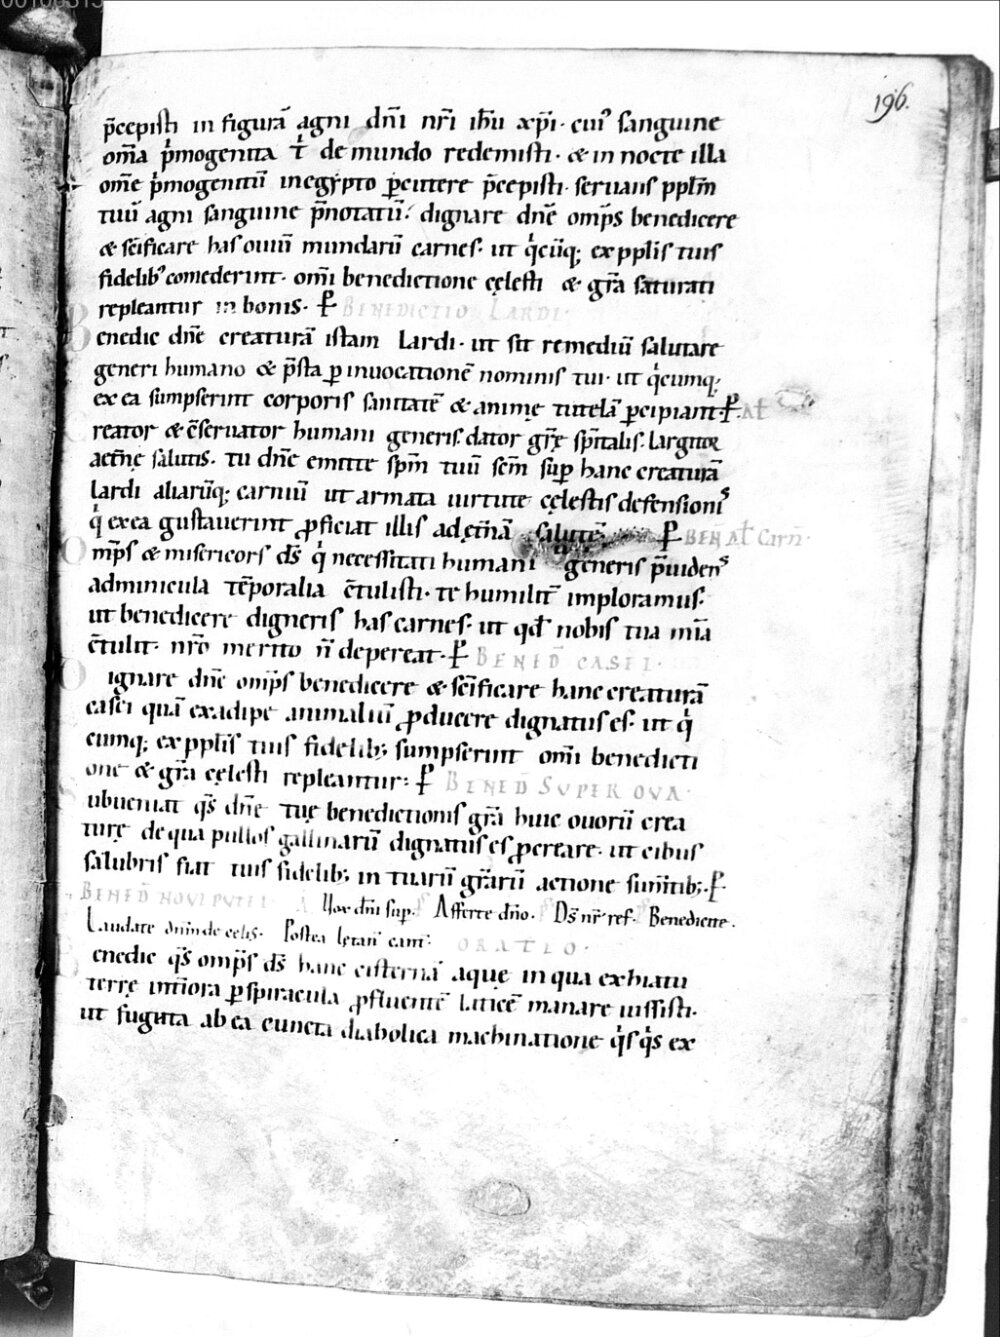 196.
p̄cepisti in figurā agni dn̄i nr̄i ih̄u xp̄i · cui᾽ sanguine
om̄a p̍mogenita t̄ de mundo redemisti · & in nocte illa
om̄e p̍mogenitū in egypto ꝑcutere p̄cepisti · seruans ppl̄m
tuū agni sanguine p̄notatū · dignare dn̄e omp̄s benedicere
& sc̄ificare has ouiū mundarū carnes · ut q̍cūq; ex pplis tuis
fidelib᾽ comederint · om̄i benedictione cęlesti & gr̄a saturati
repleantur in bonis · ꝑ BENEDICTIO LARDI ·
Benedic dn̄e creaturā istam lardi · ut sit remediū salutare
generi humano & p̄sta ꝑ inuocationē nominis tui · ut q̍cumq;
ex ea sumpserint corporis sanitatē & animę tutelā ꝑcipiant · ꝑ · AŁ
Creator & c̄seruator humani generis · dator gr̄ę sp̄italis · largitor
aet̄nę salutis · tu dn̄e emitte sp̄m tuū sc̄m sup̱ hanc creaturā
lardi aliarūq; carniū ut armata uirtute cęlestis defensionis
q̍ ex ea gustauerint ꝓficiat illis ad ęt̄nā salutē · ꝑ BEN̄ AŁ CARN̄ ·
Omp̄s & misericors d̄s q̍ necessitati humani generis p̄uidens
adminicula tēporalia c̄tulisti · te humilit̄ imploramus ·
ut benedicere digneris has carnes · ut qd̄ nobis tua mīa
c̄tulit · nr̄o merito n̄ depereat · ꝑ BENED̄ CASEI ·
Dignare dn̄e omp̄s benedicere & sc̄ificare hanc creaturā
casei quā ex adipe animaliū ꝓducere dignatus es · ut q̍
cumq; ex pplis tuis fidelib; sumpserint om̄i benedicti
one & gr̄a cęlesti repleantur · ꝑ BENED̄ SUPER OVA ·
Subueniat q̄s dn̄e tuę benedictionis gr̄a huic ouorū crea
turę de qua pullos gallinarū dignatus es ꝓcreare · ut cibus
salubris fiat tuis fidelib; in tuarū gr̄arū actione sum̄tib; · ꝑ ·
BENED̄ NOVI PUTEI Vox dn̄i sup̱ · Afferte dn̄o · D̄s nr̄ ref · Benedicite ·
Laudate dn̄m de celis · Postea lętan̄ cant̄ · ORATIO ·
Benedic q̄s omp̄s d̄s hanc cisternā aquę in qua ex hiatu
terrę int̄iora ꝑ spiracula ꝓfluentē laticē manare iussisti ·
ut fugata ab ea cuncta diabolica machinatione q̍s q̍s ex